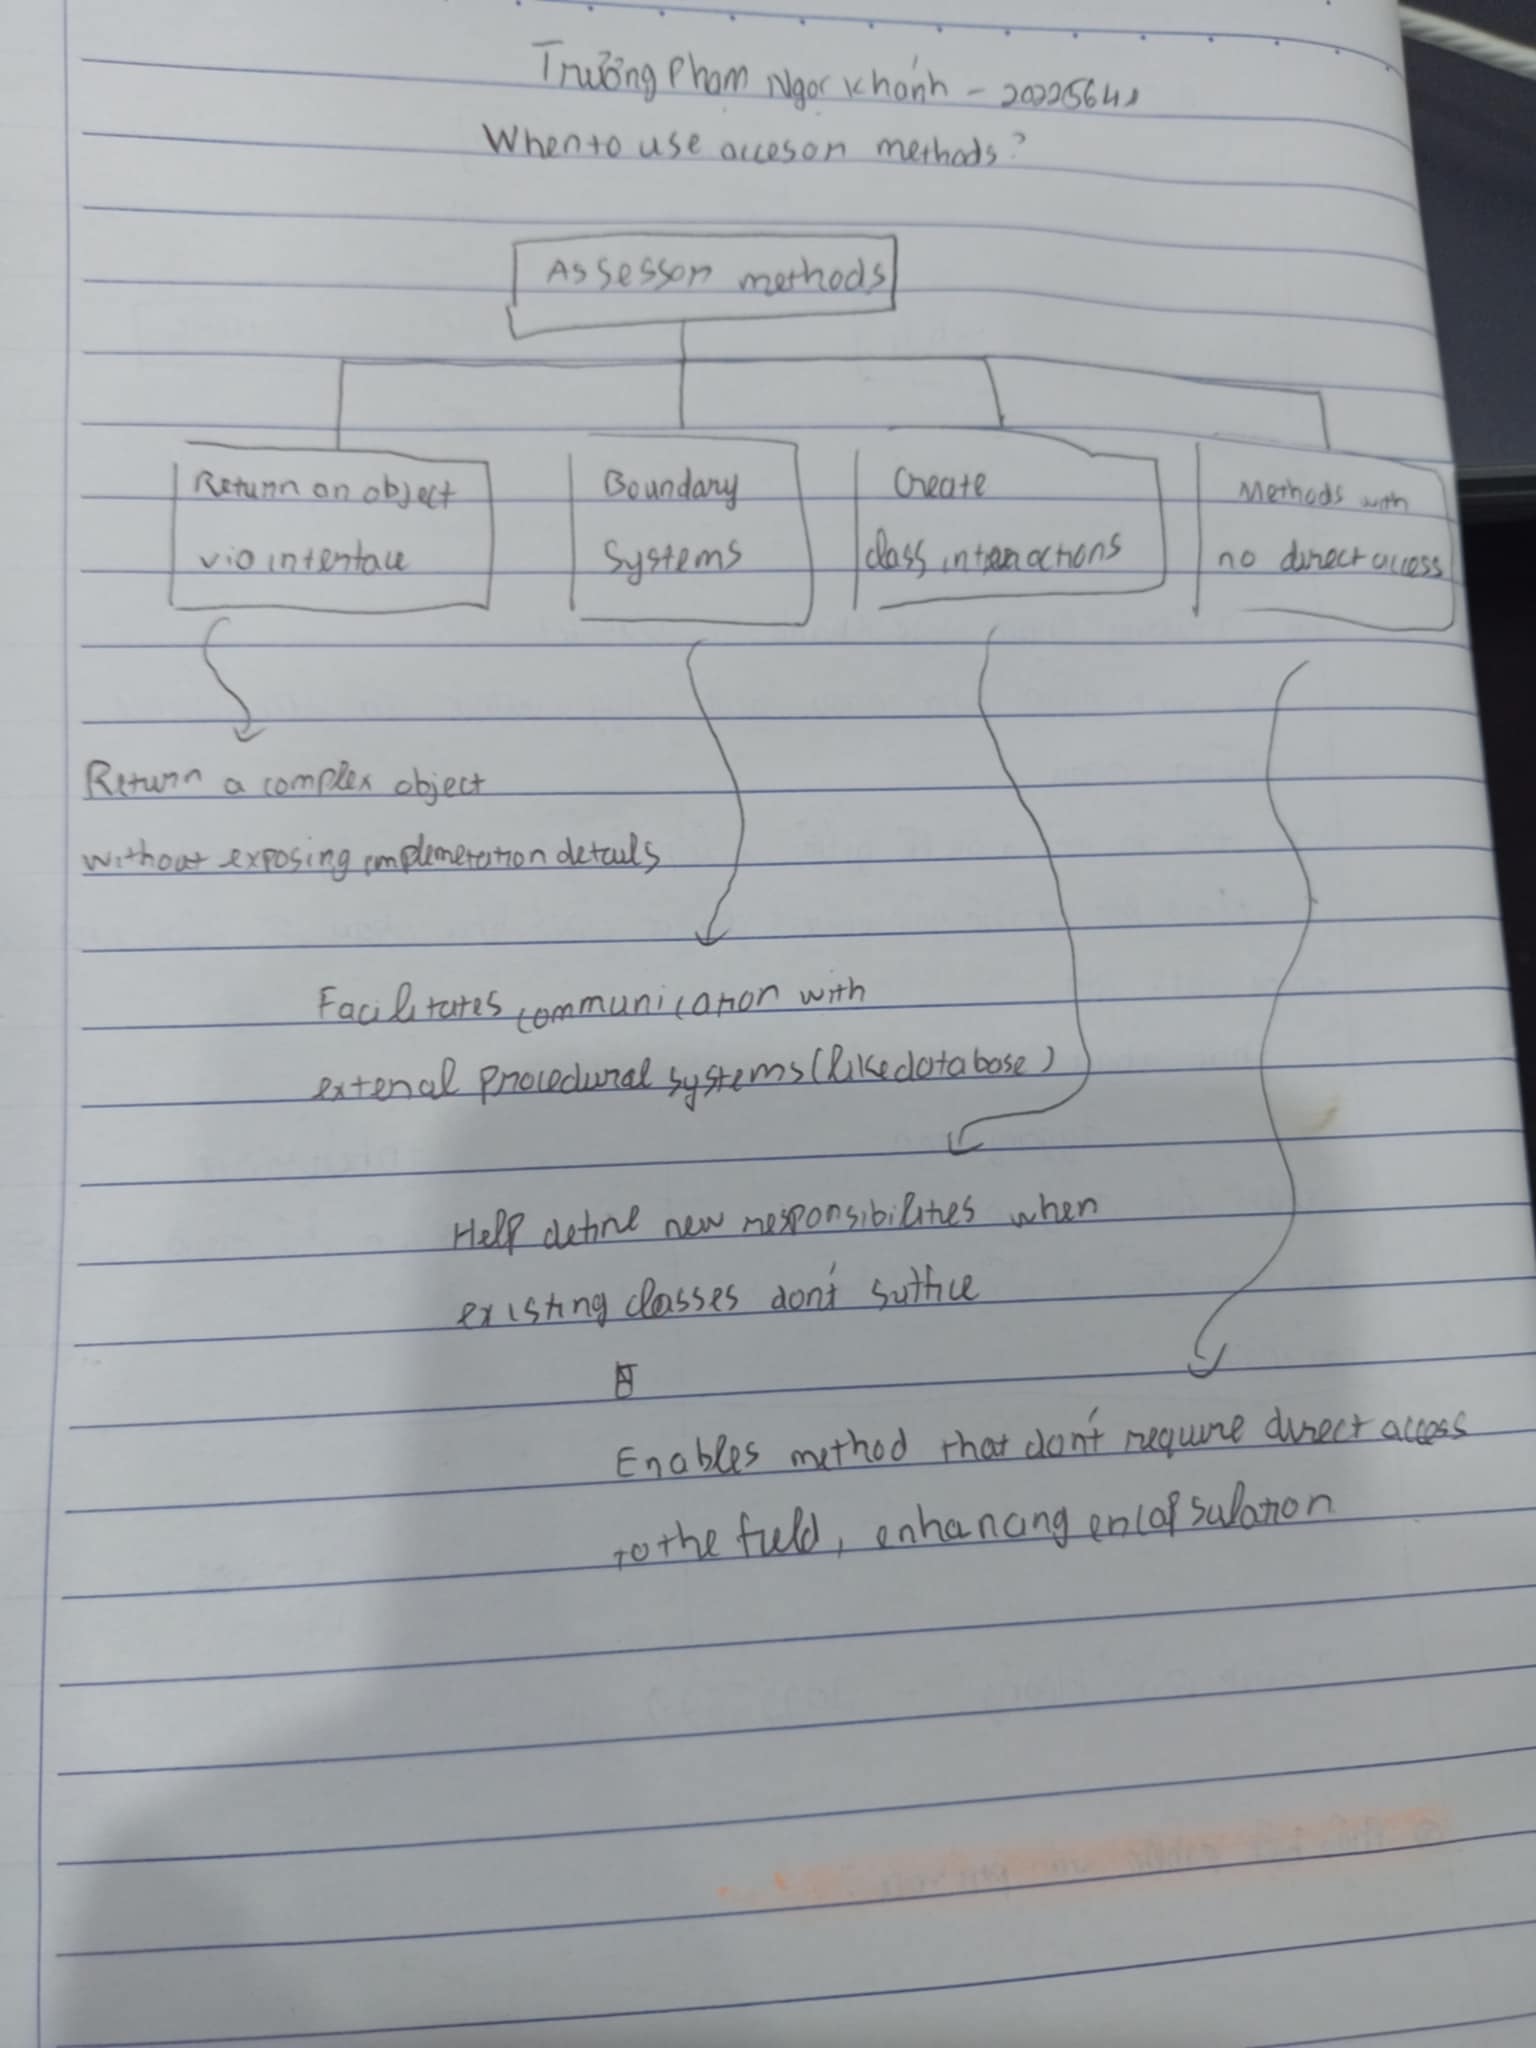 Trường Phạm Ngọc Khánh -
When to use accesor methods?
Assessor methods
Return an object
via interface
Boundary
Systems
Create
class interactions
Methods with
no direct access
Return a complex object
without exposing implemetation details
Facilitates communication with
extenal procedural systems (like database)
Help define new responsibilities when
existing classes don't suffice
Enables method that don't require direct access
to the field, enhancing encapsulation